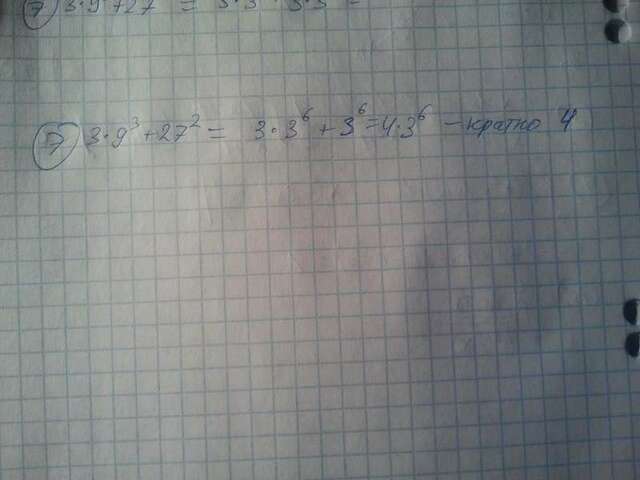 7) 3·9 +27 = 3·3
7) 3·9³+27² = 3·3⁶ + 3⁶=4·3⁶ – кратно 4